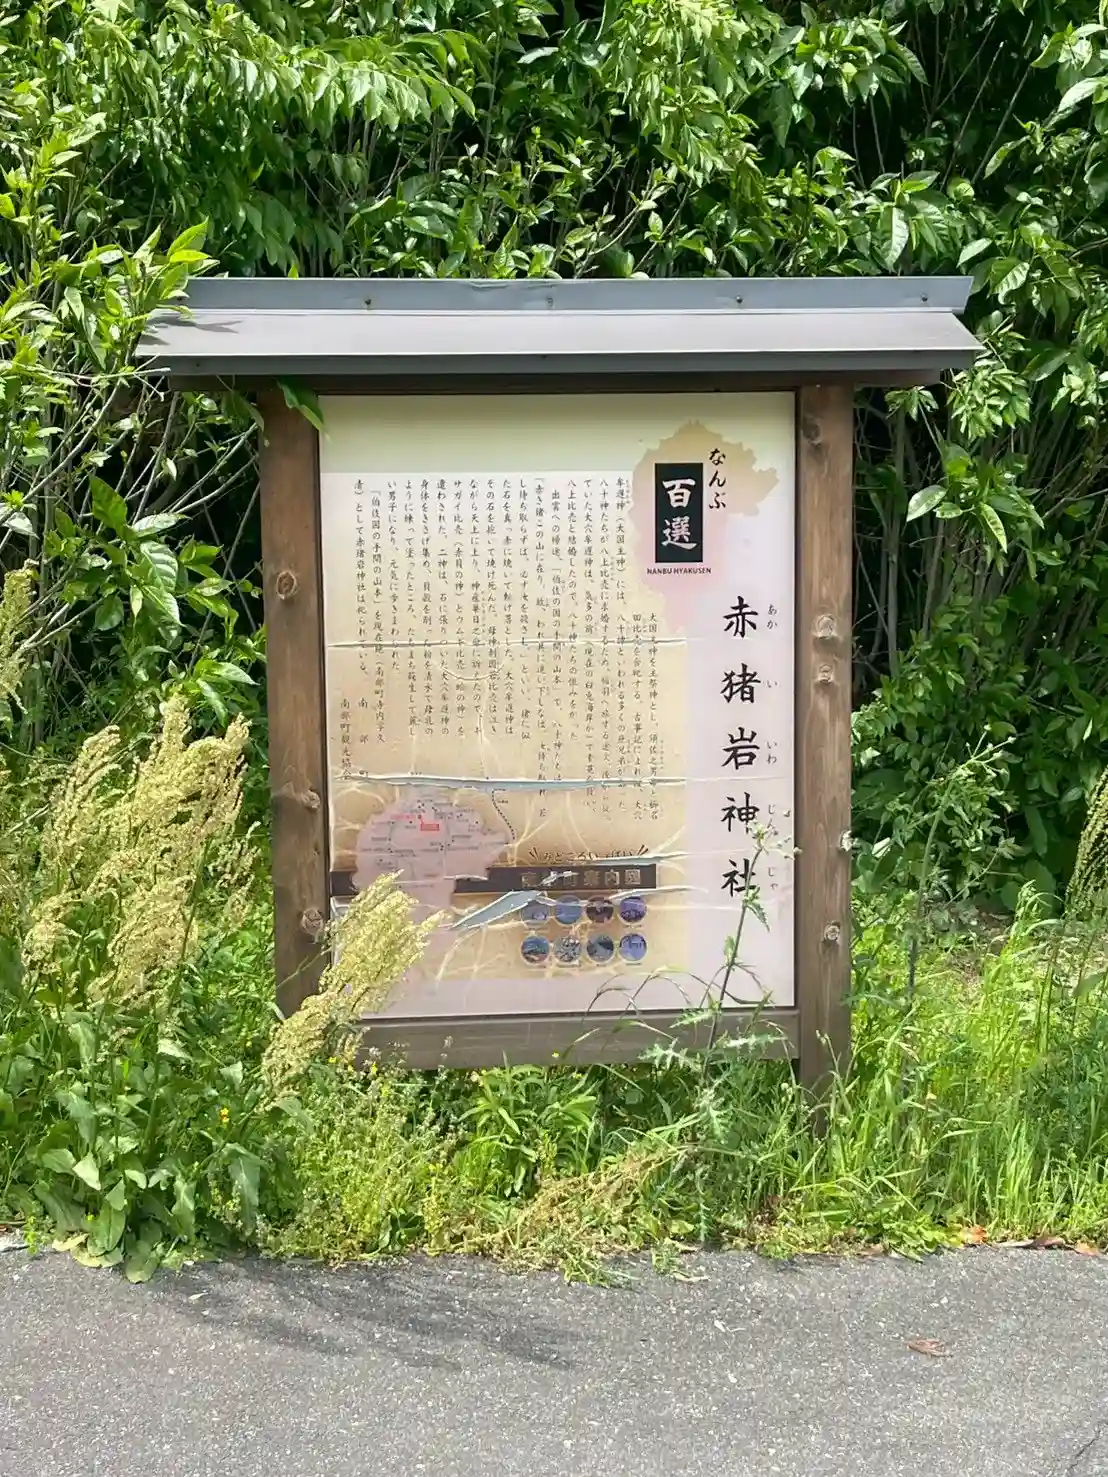 なんぶ
百選
NANBU HYAKUSEN
赤猪岩神社
あかいいわじんじゃ
大国主神を主祭神とし、須佐之男
田比売を合祀する。古事記によれば、大穴
牟遅神(大国主神)には、八十神といわれる多くの兄弟が
八十神たちが八上比売に求婚するため、稲羽へ旅する途次、
ていた大穴牟遅神は、気多の前(現在の白兎海岸か)で
八上比売と結婚したので、八十神たちの恨みをかった。
出雲への帰途、「伯伎の国の手間の山本」で、八十神たちは
「赤き猪この山に在り。故、われ共に追い下しなば、
し待ち取らずば、必ず汝を殺さむ」といい、猪に似
た石を真っ赤に焼いて転げ落とした。大穴牟遅神は
その石を抱いて焼け死んだ。母神刺国若比売は泣き
ながら天上に上り、神産巣日之命に訴えたので、キ
サガイ比売(赤貝の神)とウムギ比売(蛤の神)を
遣わされた。二神は、石に張りついた大穴牟遅神の
身体をきさげ集め、貝殻を削った粉を清水で母乳の
ように練って塗ったところ、たちまち蘇生して麗し
い男子になり、元気に歩きまわられた。
「伯伎国の手間の山本」を現在地(南部町寺内字久
清)として赤猪岩神社は祀られている。
南部町
南部町観光協会
みどころいっぱい
南部町案内図